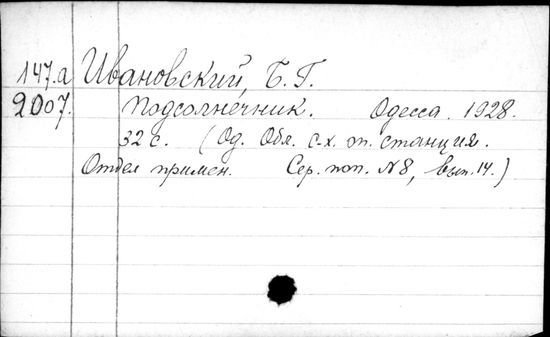 147.а Ивановский, Б. Г.
2007. Подсолнечник. Одесса. 1928.
32 с. (Од. Обл. с-х. оп. станция.
Отдел примен. Сер. поп. №8, вып. 14.)